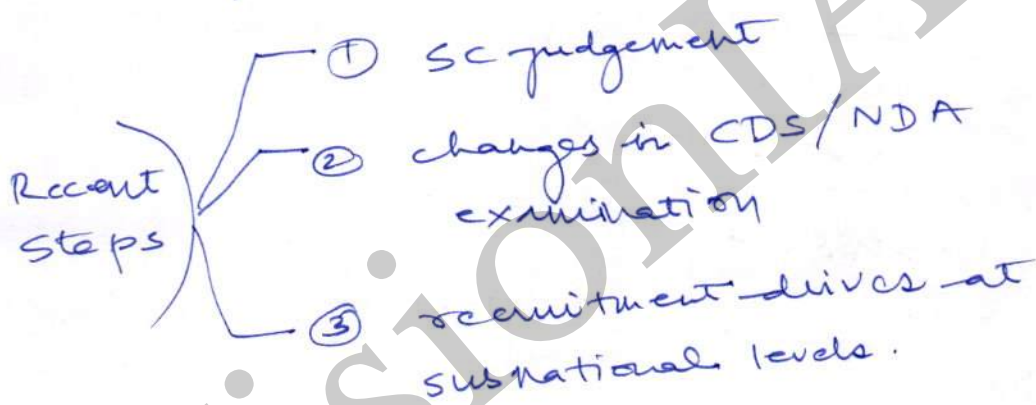 Recent
Steps
① SC judgement
② changes in CDS/NDA
examination
③ recruitment drives at
subnational levels.
VisionIA